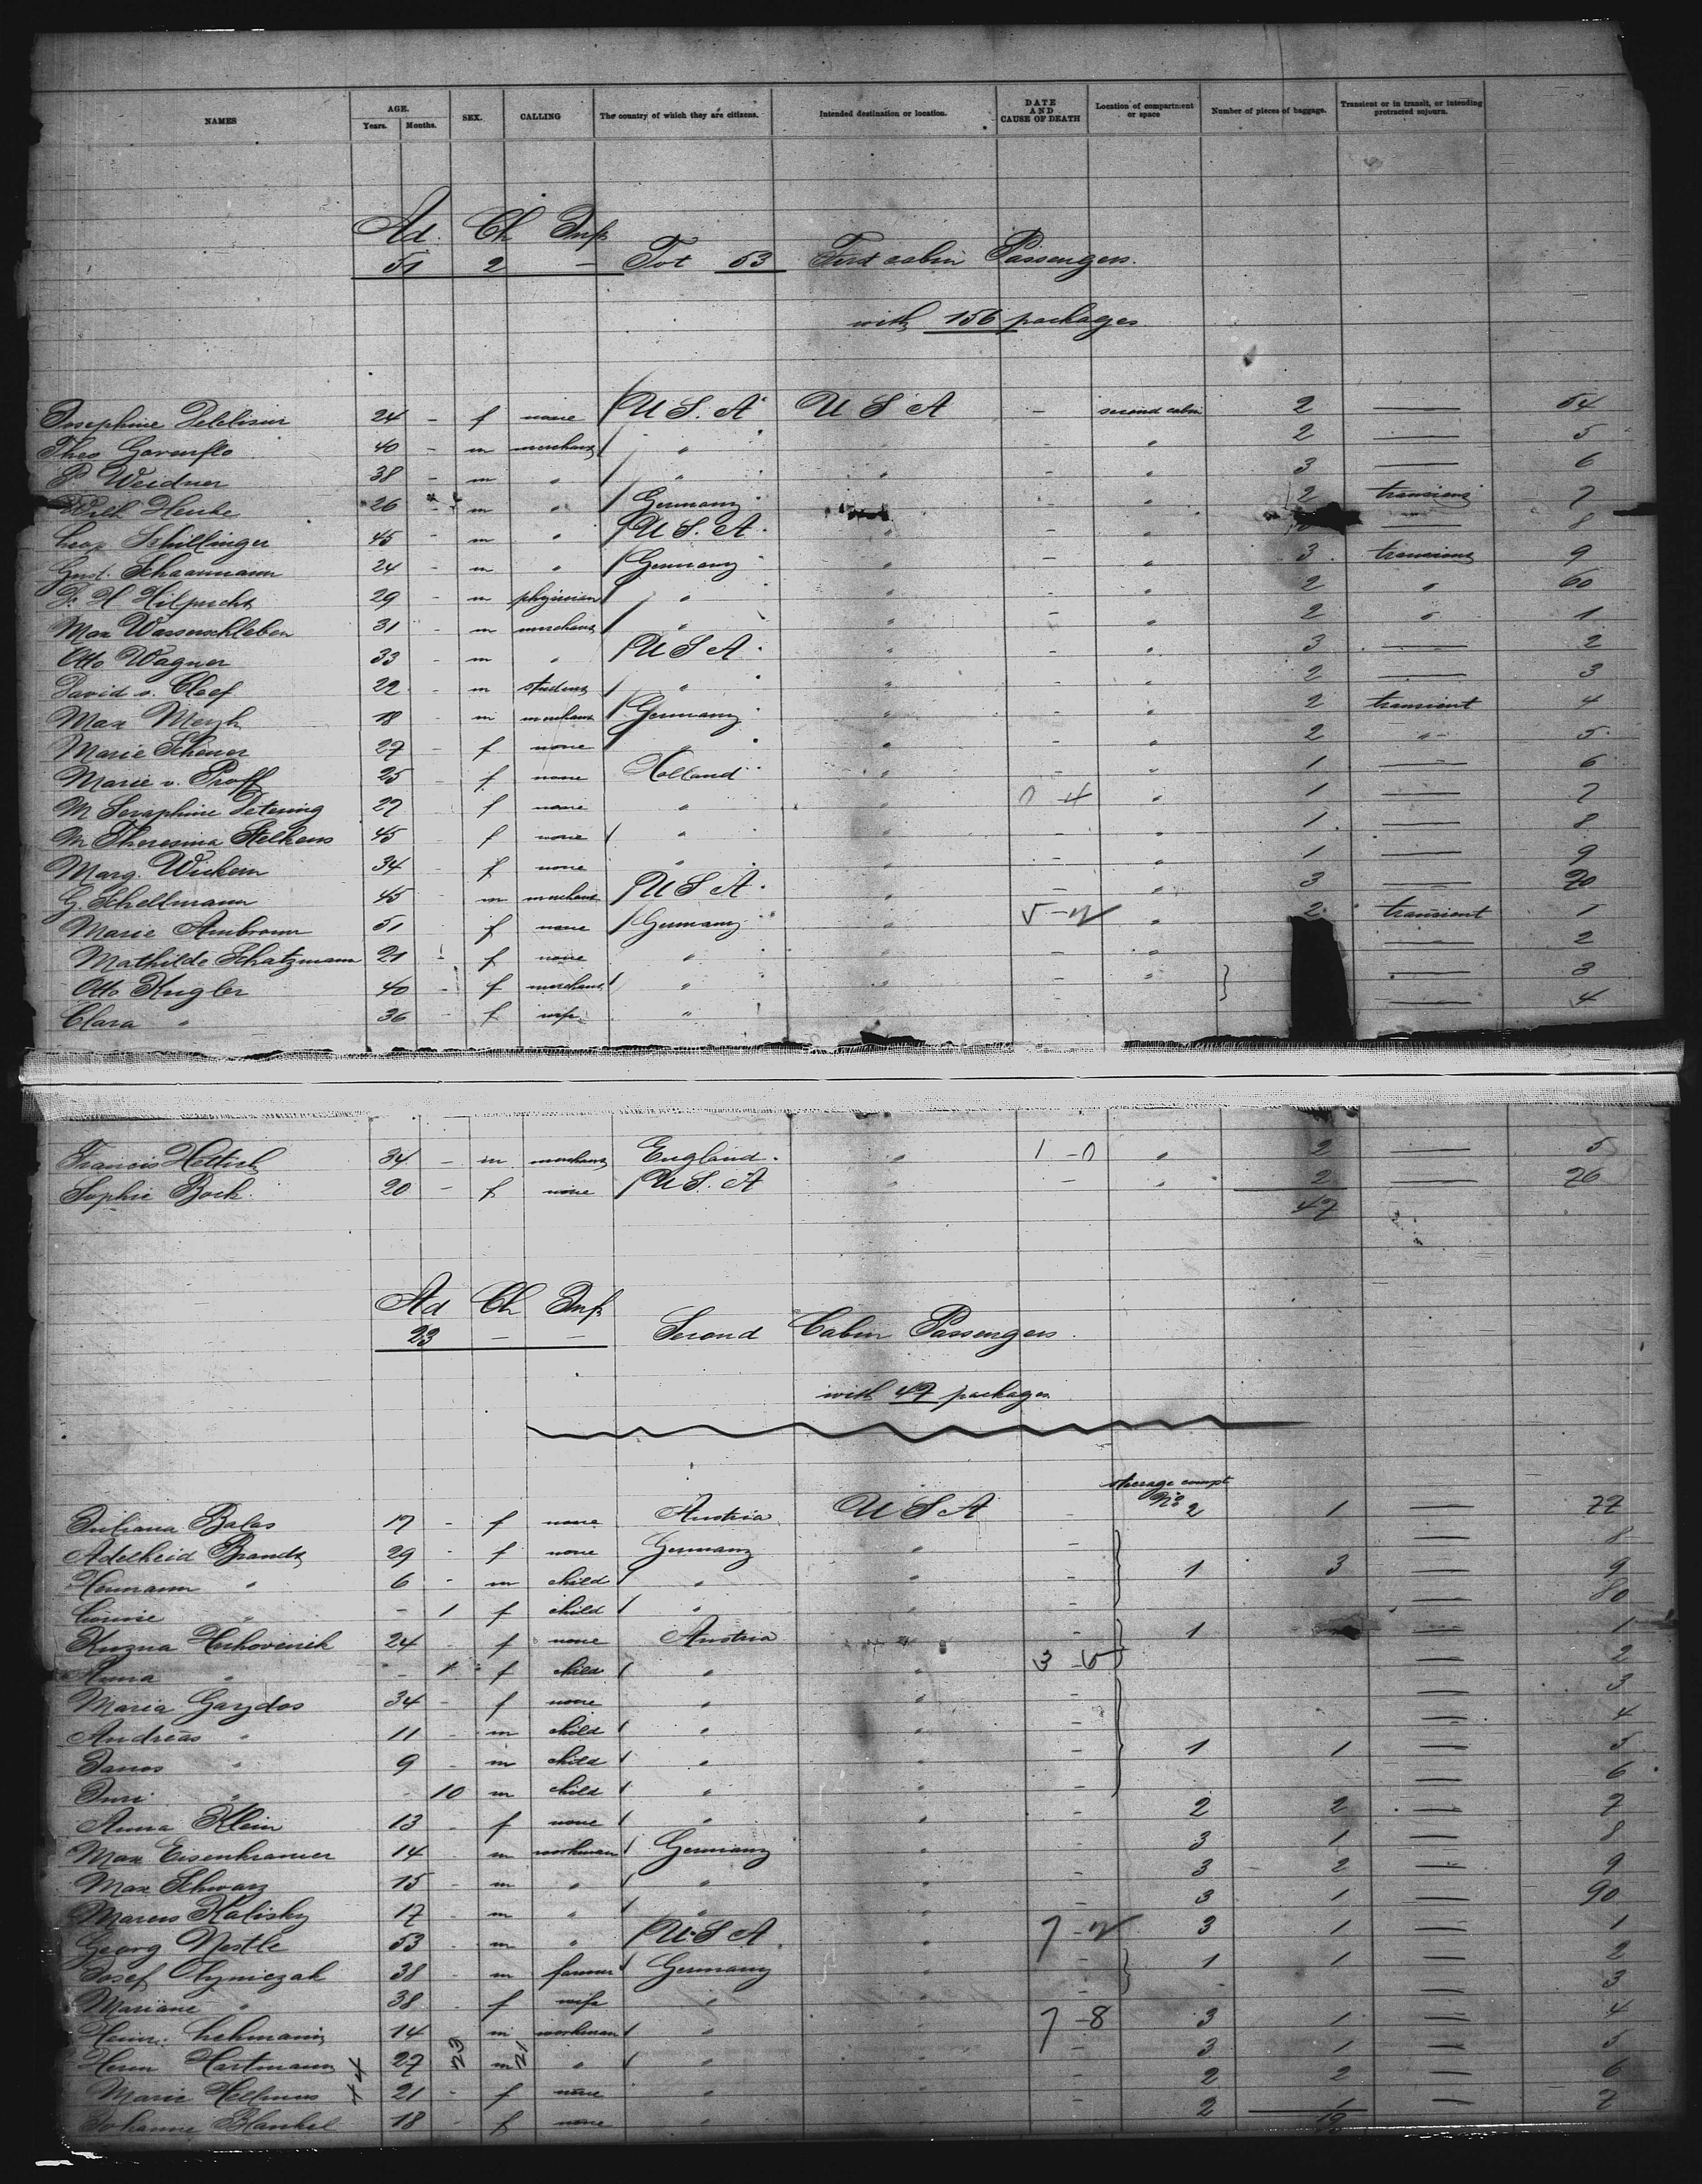 NAMES AGE. Years. Months. SEX. CALLING The country of which they are citizens. Intended destination or location. DATE AND CAUSE OF DEATH Location of compartment or space Number of pieces of baggage. Transient or in transit, or intending protracted sojourn.
Ad. Ch Inf.
51 2 — Tot 53 First cabin Passengers.
with 156 packages
Josephine 24 - f none U S. A U S A - second cabin 2 — 54
Theo Gorenflo 40 - m merchant " " - " 2 — 5
P. Weidner 38 - m " " " - " 3 — 6
Wilh Henke 26 - m " Germany " 2 transient 7
Schillinger 45 - m " U. S. A. " - " — 8
Gust. Schaarmann 24 - m " Germany " - " 3 transient 9
Dr H Hilprecht 29 - m physician " " - " 2 " 60
Max Wasserschleben 31 - m merchant " " - " 2 " 1
Otto Wagner 33 - m " U S A. " - " 3 — 2
David v. Cleef 22 - m student " " - " 2 — 3
Max 18 - m merchant Germany " - " 2 transient 4
Marie Scheuer 27 - f none " " - " 2 " 5
Marie v. Proff 25 - f none Holland " - " 1 — 6
M Seraphine Detering 27 - f none " " 0-4 " 1 — 7
M Theresina Stelkens 45 - f none " " - " 1 — 8
Marg. Wickem 34 - f none " " - " 1 — 9
G. Schellmann 45 - m merchant U S A. " - " 3 — 70
Marie Ambronn 51 - f none Germany " " 2 transient 1
Mathilde Schatzmann 21 - f none " " - " — 2
Otto Kugler 40 - f merchant " " - " — 3
Clara " 36 - f wife " " - — 4
Francis Hettich 34 - m merchant England. " 1-0 " 2 — 5
Sophie Bock. 20 - f none U S. A " - " 2 — 76
47
Ad Ch Inf.
23 — — Second Cabin Passengers.
with 47 packages
steerage compt
No
Juliana Balas 17 - f none Austria U S A - 2 1 — 77
Adelheid Brandt 29 - f none Germany " - — 8
Hermann " 6 - m child " " - 1 3 — 9
Louise " - 1 f child " " - — 80
24 - f none Austria - 1 — 1
Anna " - 1 f child " " 3-5 — 2
Maria Gaydos 34 - f none " " - — 3
Andreas " 11 - m child " " - — 4
Janos " 9 - m child " " - 1 1 — 5
Juri " - 10 m child " " - — 6
Anna Klein 13 - f none " " - 2 2 — 7
Max Eisenkramer 14 - m workman Germany " - 3 1 — 8
Max Schwarz 15 - m " " " - 3 2 — 9
Marcus Kalisky 17 - m " " " - 3 1 — 90
Georg Nestle 53 - m " U. S A " 3 1 — 1
Josef Olyniczak 38 - m farmer Germany " - 1 1 — 2
Mariane " 38 - f wife " " - 3
Heinr. Lehmann 14 m workman " " 7-8 3 1 — 4
Herm Hartmann 27 m " " " - 3 1 — 5
Marie Hellmers 21 - f none " " - 2 2 — 6
Johanne Blankel 18 - f none " " - 2 1 — 7
44 23 21